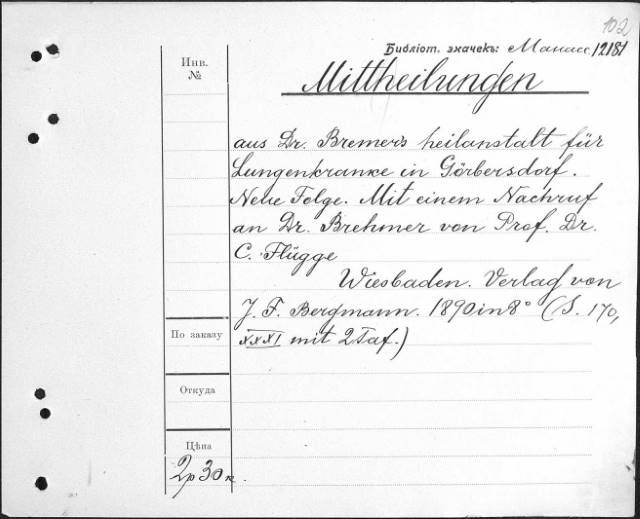 102
Библіот. значекъ: Манас. 12181
Инв.
№
Mittheilungen
aus Dr. Bremer's heilanstalt für
Lungenkranke in Görbersdorf.
Neue Folge. Mit einem Nachruf
an Dr. Brehmer von Prof. Dr.
C. Flügge
Wiesbaden. Verlag von
J. F. Bergmann. 1890 in 8° (S. 170,
По заказу
XXXI mit 2 Taf.)
Откуда
Цѣна
2р 30 к.